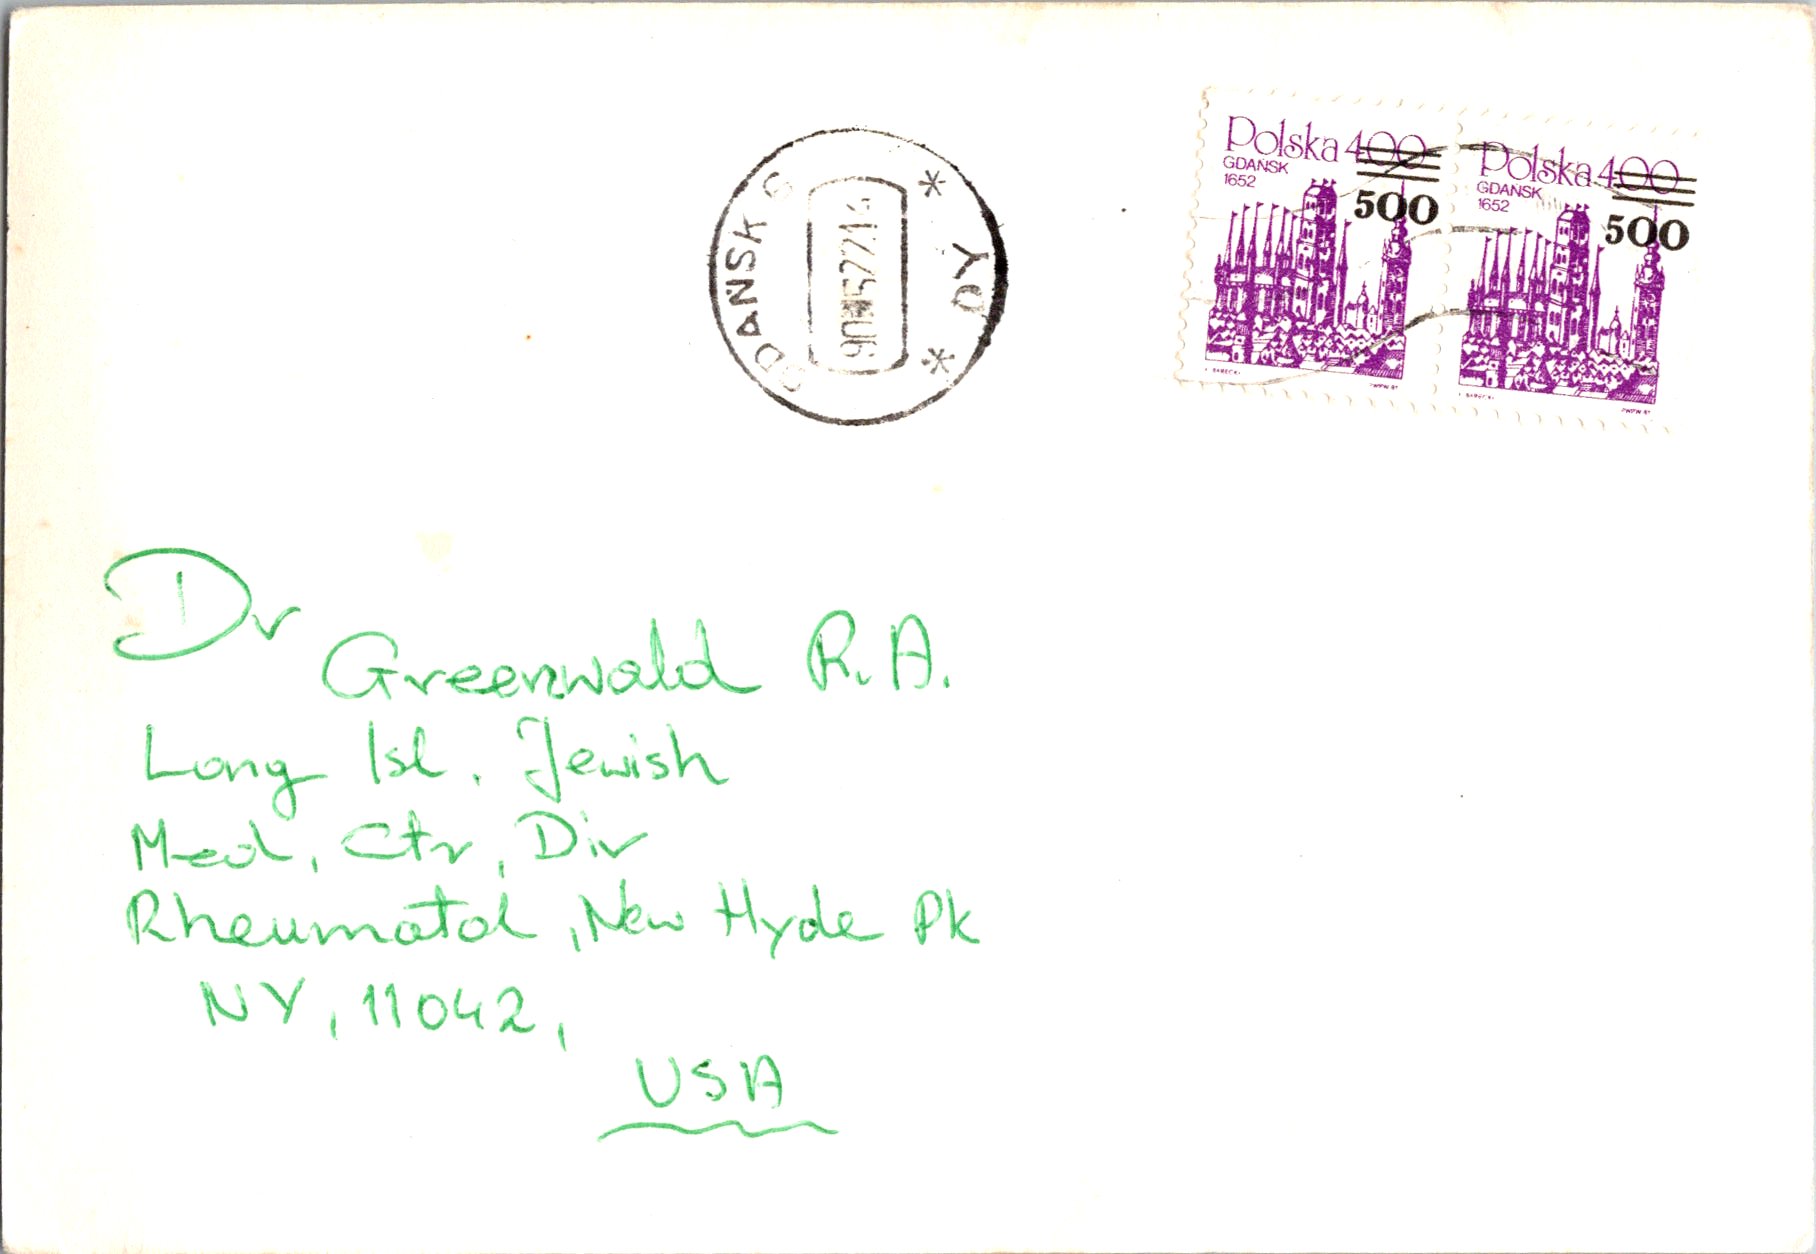 GDAŃSK 6
* QY *
Polska 400
GDAŃSK
1652
500
Polska 400
GDAŃSK
1652
500
Dr
Greenwald R.A.
Long Isl. Jewish
Med, Ctr, Div
Rheumatol, New Hyde Pk
NY, 11042,
USA